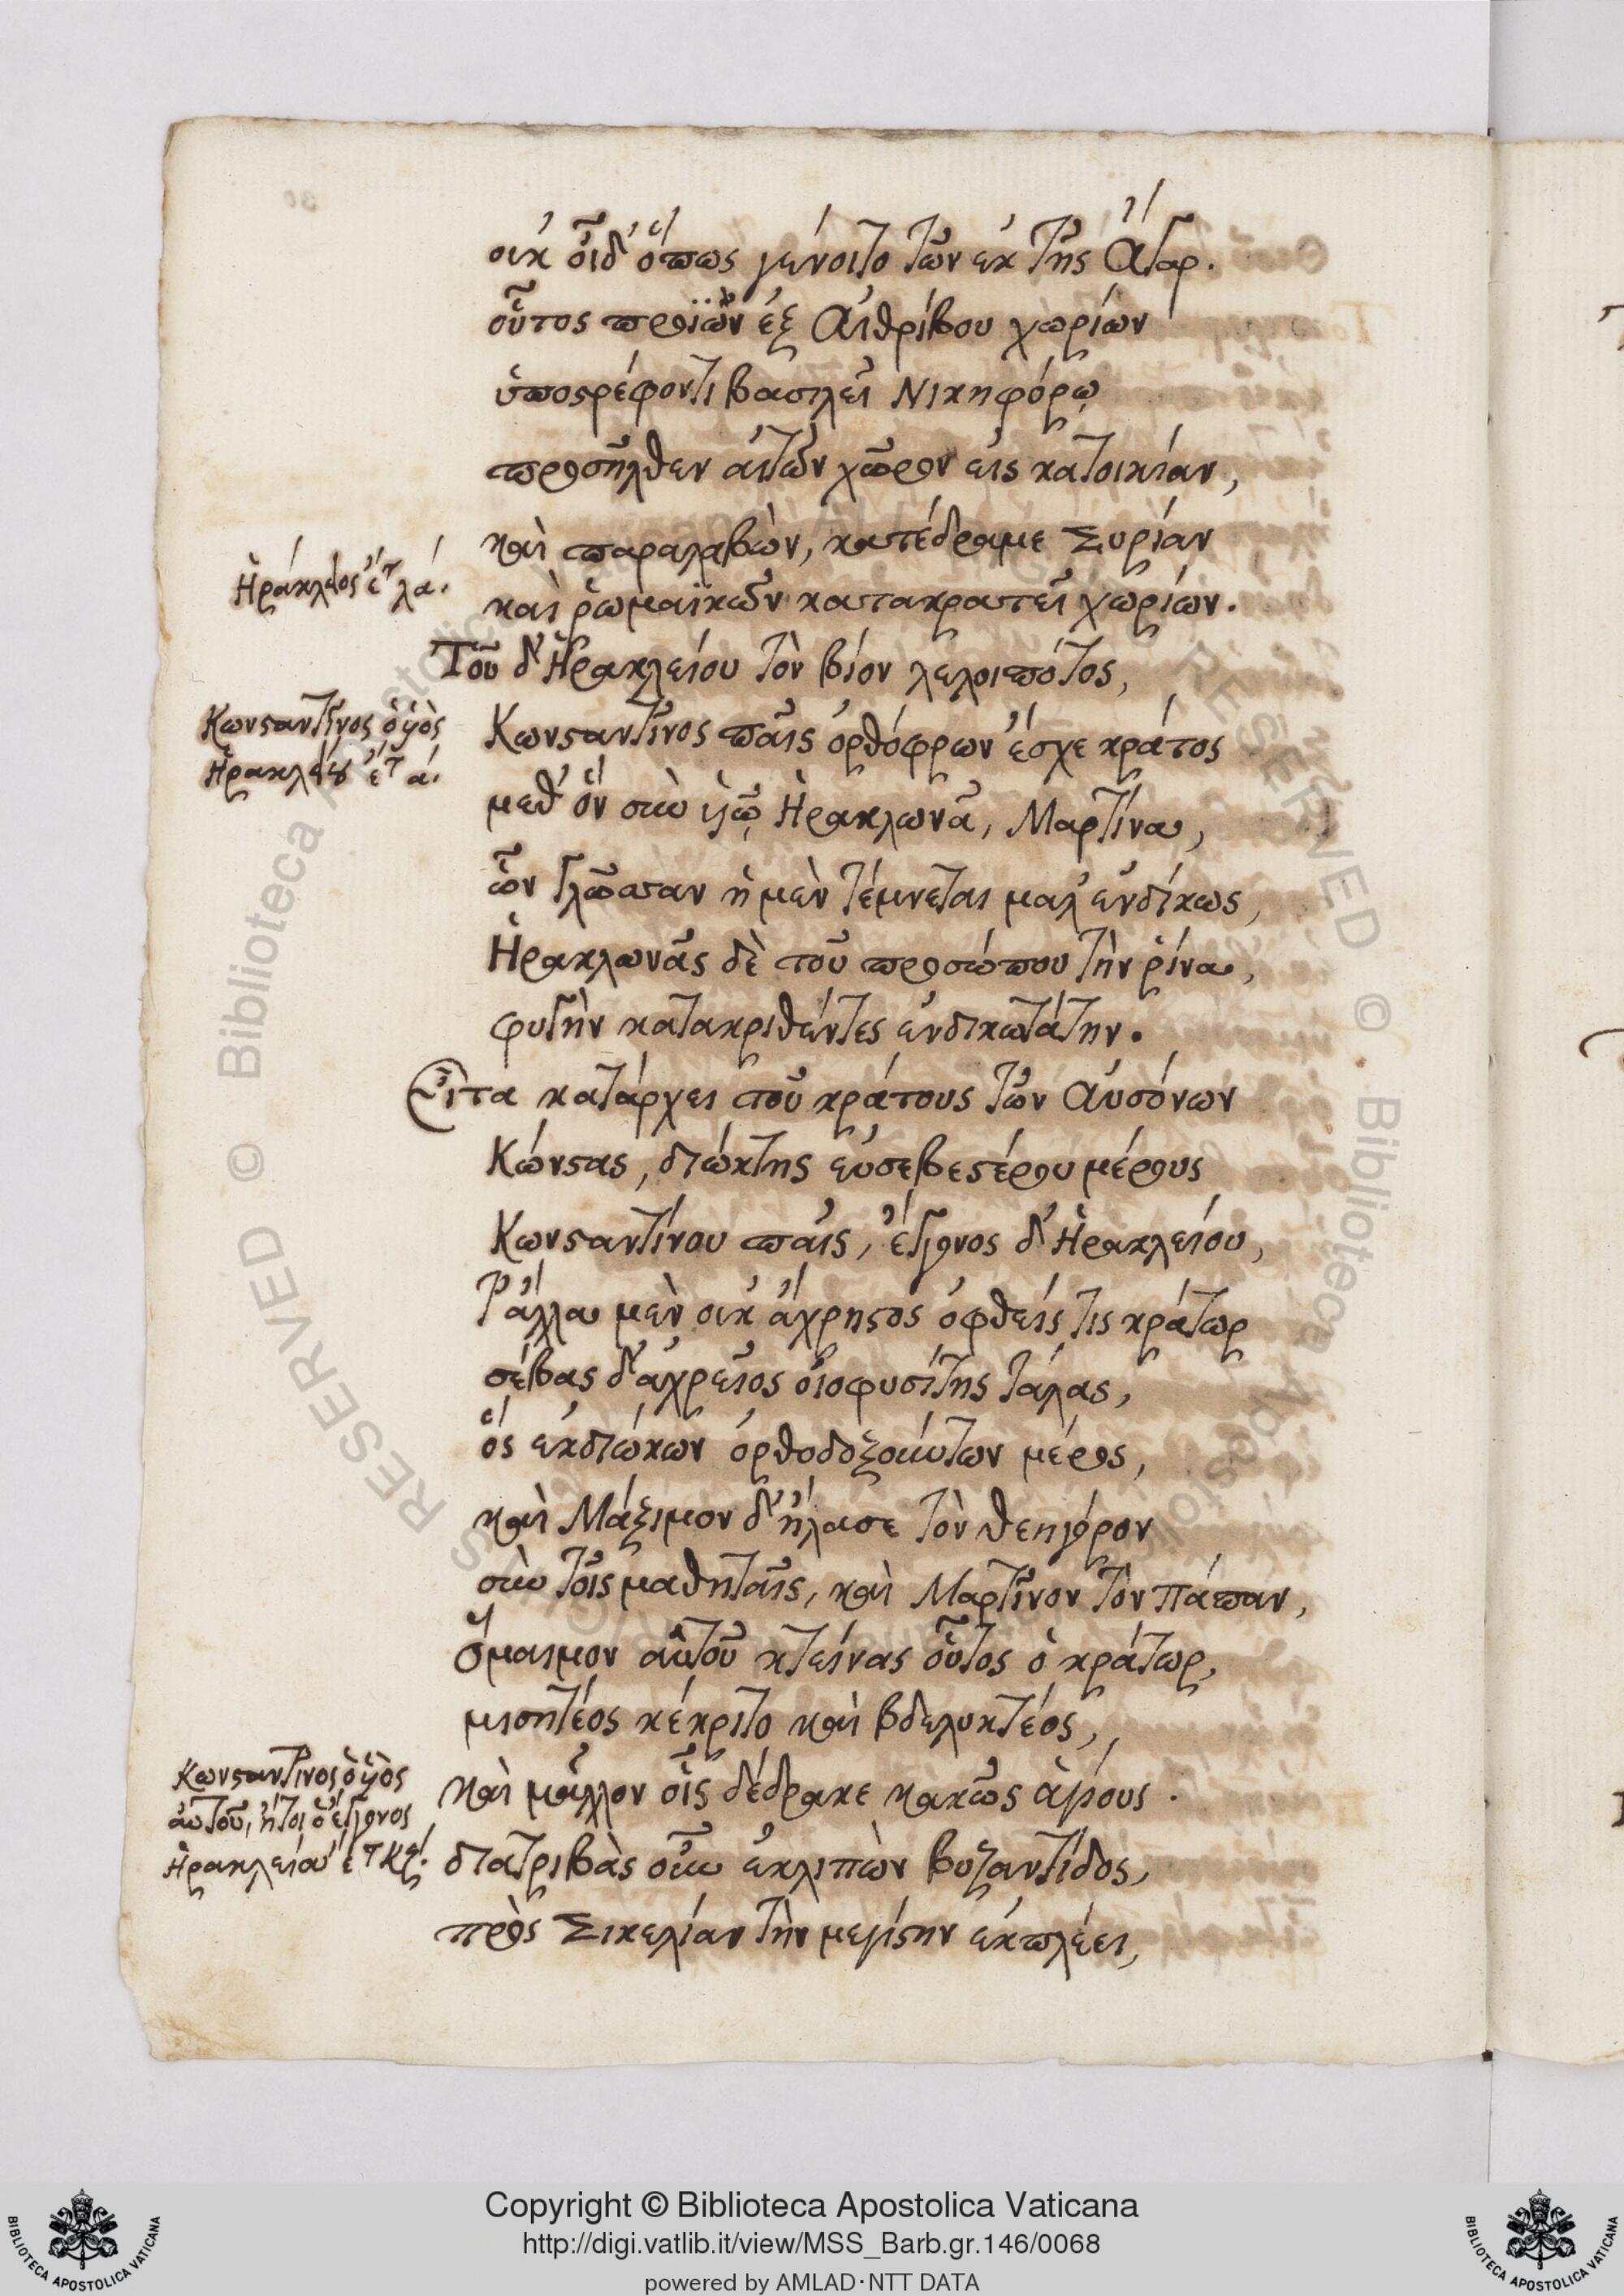 οὐκ οἶδ' ὅπως γένοιτο τῶν ἐκ τῆς Ἄγαρ.
οὗτος προϊὼν ἐξ Αἰθρίβου χωρίων
ὑποστρέφοντι βασιλεῖ Νικηφόρῳ
προσῆλθεν αἰτῶν χῶρον εἰς κατοικίαν,
καὶ παραλαβὼν, κατέδραμε Συρίαν
Ἡράκλειος ἔτ λά.
καὶ ῥωμαϊκῶν κατακρατεῖ χωρίων.
Τοῦ δ' Ἡρακλείου τὸν βίον λελοιπότος,
Κωνσταντῖνος ὁ ὑὸς
Ἡρακλείου ἔτ ά.
Κωνσταντῖνος παῖς ὀρθόφρων ἔσχε κράτος
μεθ' ὃν σὺν ὑῷ Ἡρακλωνᾷ, Μαρτίνα,
ὧν γλῶσσαν ἡ μὲν τέμνεται μαλ' ἐνδίκως,
Ἡρακλωνᾶς δὲ τοῦ προσώπου τὴν ῥίνα,
φυγὴν κατακριθέντες ἐνδικωτάτην.
Εἶτα κατάρχει τοῦ κράτους τῶν Αὐσόνων
Κώνστας, διώκτης εὐσεβεστέρου μέρους
Κωνσταντίνου παῖς, ἔγγονος δ' Ἡρακλείου,
τ' ἄλλα μὲν οὐκ ἄχρηστος ὀφθείς τις κράτωρ
σέβας δ' ἀχρεῖος οἰοφυσίτης τάλας,
ὃς ἐκδιώκων ὀρθοδοξούντων μέρος,
καὶ Μάξιμον δ' ἤλασε τὸν θεηγόρον
σὺν τοῖς μαθηταῖς, καὶ Μαρτῖνον τὸν πάπαν,
ὅμαιμον αὐτοῦ κτείνας οὗτος ὁ κράτωρ,
μισητέος κέκριτο καὶ βδελυκτέος,
Κωνσταντῖνος ὁ ὑὸς
αὐτοῦ, ἤτοι ὁ ἔγγονος
Ἡρακλείου ἔτ κζ.
καὶ μᾶλλον οἷς δέδρακε κακῶς ἁγίους.
διατριβὰς οὖν ἐκλιπὼν βυζαντίδος,
πρὸς Σικελίαν τὴν μεγίστην ἐκπλέει,
© Biblioteca Apostolica Vaticana
RIGHTS RESERVED
Copyright © Biblioteca Apostolica Vaticana
http://digi.vatlib.it/view/MSS_Barb.gr.146/0068
powered by AMLAD·NTT DATA
BIBLIOTECA APOSTOLICA VATICANA
BIBLIOTECA APOSTOLICA VATICANA